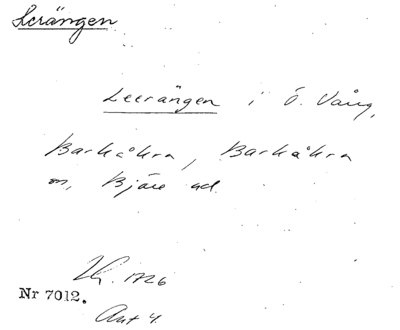 Lerängen
Leerängen i Ö. Vång,
Barkåkra, Barkåkra
sn, Bjäre hd.
1726
Nr 7012.
Akt 4.